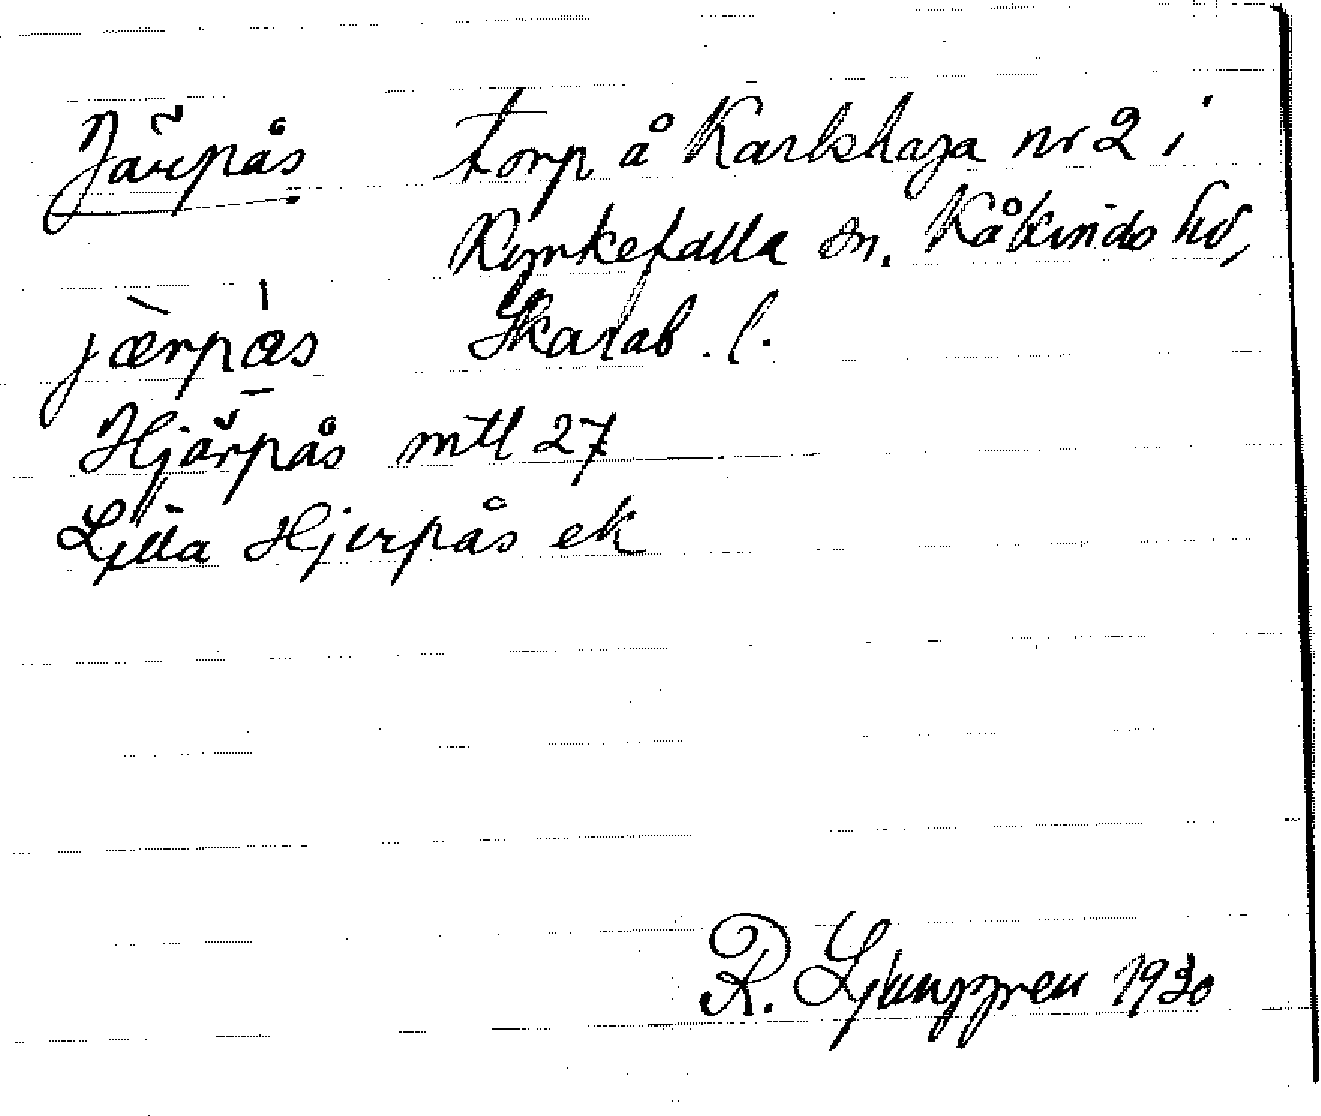 Järpås torp å Karlshaga nr 2 i
Kyrkefalla sn, Kåkinds hd,
Skarab. l.
jærpås
Hjärpås mtl 27
Lilla Hjerpås ek
R. Ljunggren 1930